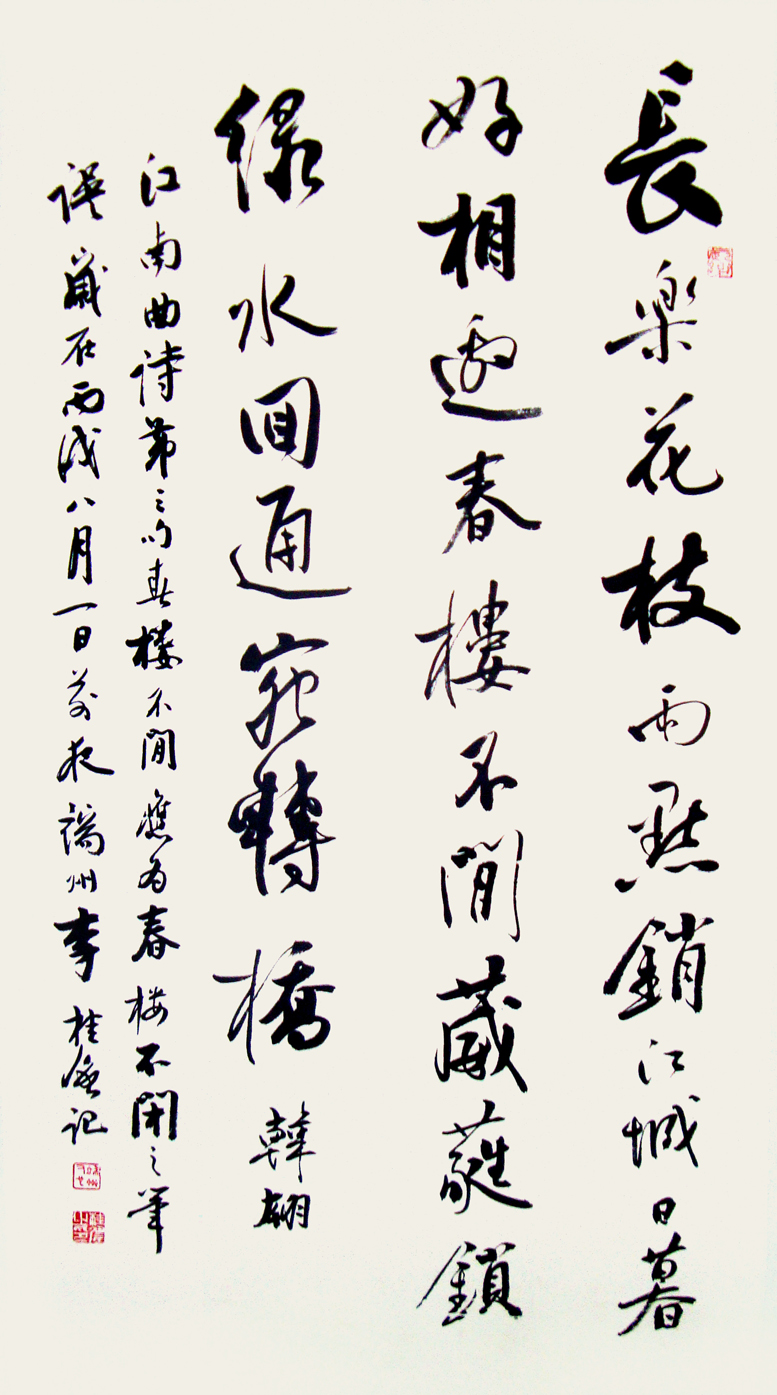 長樂花枝雨點銷江城日暮
好相邀春樓不閒葳蕤鎖
緑水回通宛轉橋 韓翃
江南曲诗第三句春楼不閒應为春楼不閉之筆
误歲在丙戌八月一日前夜端州李桂
记